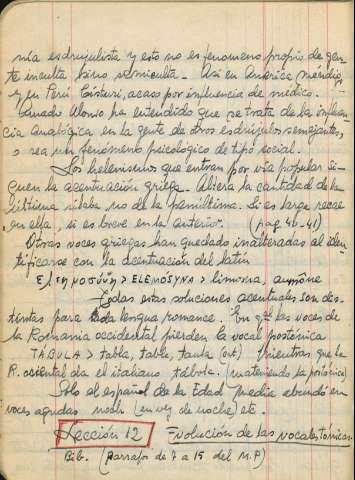 nía esdrujulista y esto no es fenomeno propio de gen-
te inculta sino semiculta. Asi en America meridio.
y en Perú Cóisturi, acaso por influencia de médico.
Amado Alonso ha entendido que se trata de la influen
cia analógica en la gente de otros esdrújulos semejantes,
o sea un fenómeno psicologico de tipo social.
Los helenismos que entran por via popular si-
guen la acentuación griega. Altera la cantidad de la
última sílaba no de la penúltima. Si es larga recae
en ella, si es breve en la anterior. (pag 40-41)
Otras voces griegas han quedado inalteradas al iden-
tificarse con la acentuación del latin
> ELEMOSYNA > limosna, aumône
Todas estas soluciones acentuales son dis-
tintas para cada lengua romance. En gral las voces de
la Romania occidental pierden la vocal postónica
TABULA > tabla, table, taula (cat) Mientras que la
R. oriental da el italiano tábola. (manteniendo la postónica)
Solo el español de la Edad Media abundó en
voces agudas noch (en vez de noche) etc.
Lección 12 Evolución de las vocales tónicas
Bib. (parrafos de 7 a 15 del M.P)